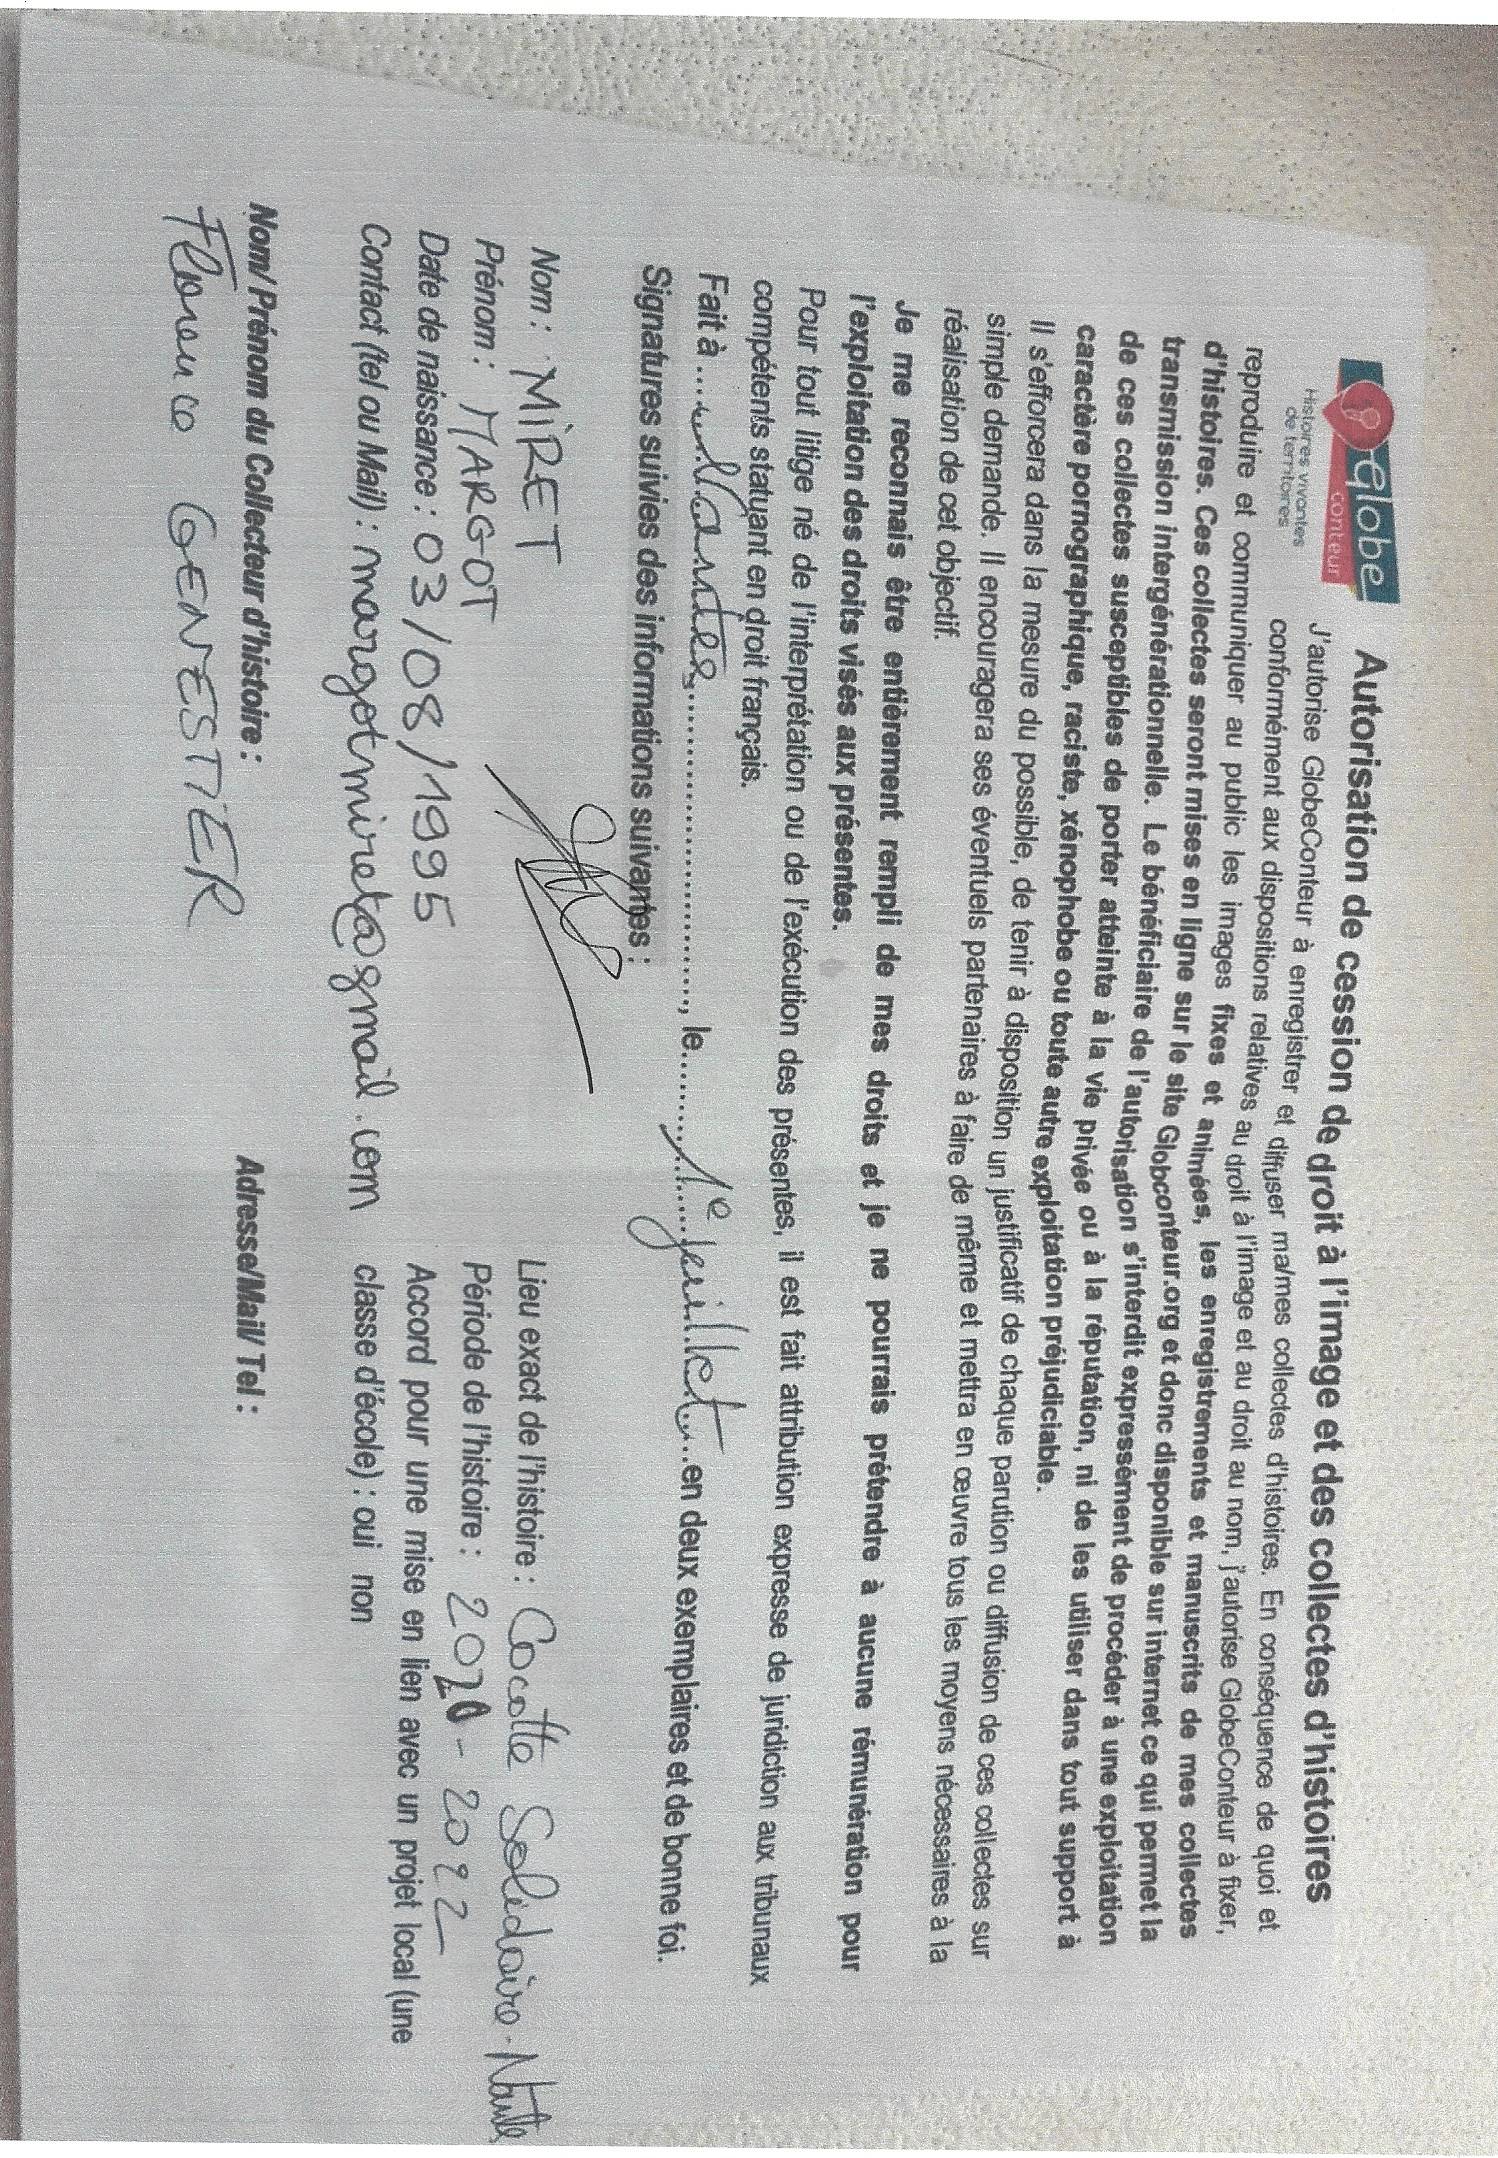 Globe
conteur
Histoires vivantes
de territoires
Autorisation de cession de droit à l'image et des collectes d'histoires
J'autorise GlobeConteur à enregistrer et diffuser ma/mes collectes d'histoires. En conséquence de quoi et
conformément aux dispositions relatives au droit à l'image et au droit au nom, j'autorise GlobeConteur à fixer,
reproduire et communiquer au public les images fixes et animées, les enregistrements et manuscrits de mes collectes
d'histoires. Ces collectes seront mises en ligne sur le site Globconteur.org et donc disponible sur internet ce qui permet la
transmission intergénérationnelle. Le bénéficiaire de l'autorisation s'interdit expressément de procéder à une exploitation
de ces collectes susceptibles de porter atteinte à la vie privée ou à la réputation, ni de les utiliser dans tout support à
caractère pornographique, raciste, xénophobe ou toute autre exploitation préjudiciable.
Il s'efforcera dans la mesure du possible, de tenir à disposition un justificatif de chaque parution ou diffusion de ces collectes sur
simple demande. Il encouragera ses éventuels partenaires à faire de même et mettra en œuvre tous les moyens nécessaires à la
réalisation de cet objectif.
Je me reconnais être entièrement rempli de mes droits et je ne pourrais prétendre à aucune rémunération pour
l'exploitation des droits visés aux présentes.
Pour tout litige né de l'interprétation ou de l'exécution des présentes, il est fait attribution expresse de juridiction aux tribunaux
compétents statuant en droit français.
Fait à ......Nantes............................, le...........1e juillet.....en deux exemplaires et de bonne foi.
Signatures suivies des informations suivantes :
Nom : MIRET
Lieu exact de l'histoire : Cocotte Solidaire - Nantes
Prénom : MARGOT
Période de l'histoire : 2020 - 2022
Date de naissance : 03/08/1995
Accord pour une mise en lien avec un projet local (une
Contact (tel ou Mail) : margotmiret@gmail.com
classe d'école) : oui non
Nom/ Prénom du Collecteur d'histoire :
Adresse/Mail/ Tel :
Florence GENESTIER